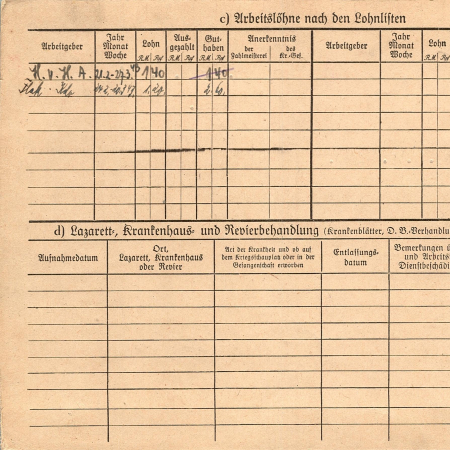 c) Arbeitslöhne nach den Lohnlisten
Arbeitgeber
Jahr Monat Woche
Lohn
R.M. Pf.
Ausgezahlt
R.M. Pf.
Guthaben
R.M. Pf.
Anerkenntnis
der Zahlmeisterei
des Kr.-Gef.
Arbeitgeber
Jahr Monat Woche
Lohn
R.M. Pf.
H. v. H. A. 21.2-27.3 1 40 1 40
d) Lazarett-, Krankenhaus- und Revierbehandlung (Krankenblätter, D. B.-Verhandlu
Aufnahmedatum
Ort,
Lazarett, Krankenhaus
oder Revier
Art der Krankheit und ob auf
dem Kriegsschauplatz oder in der
Gefangenschaft erworben
Entlassungs-
datum
Bemerkungen ü
und Arbeits
Dienstbeschädi